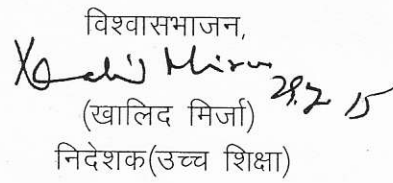 विश्वासभाजन,
Khalid Mirza
29.7.15
(खालिद मिर्जा)
निदेशक(उच्च शिक्षा)